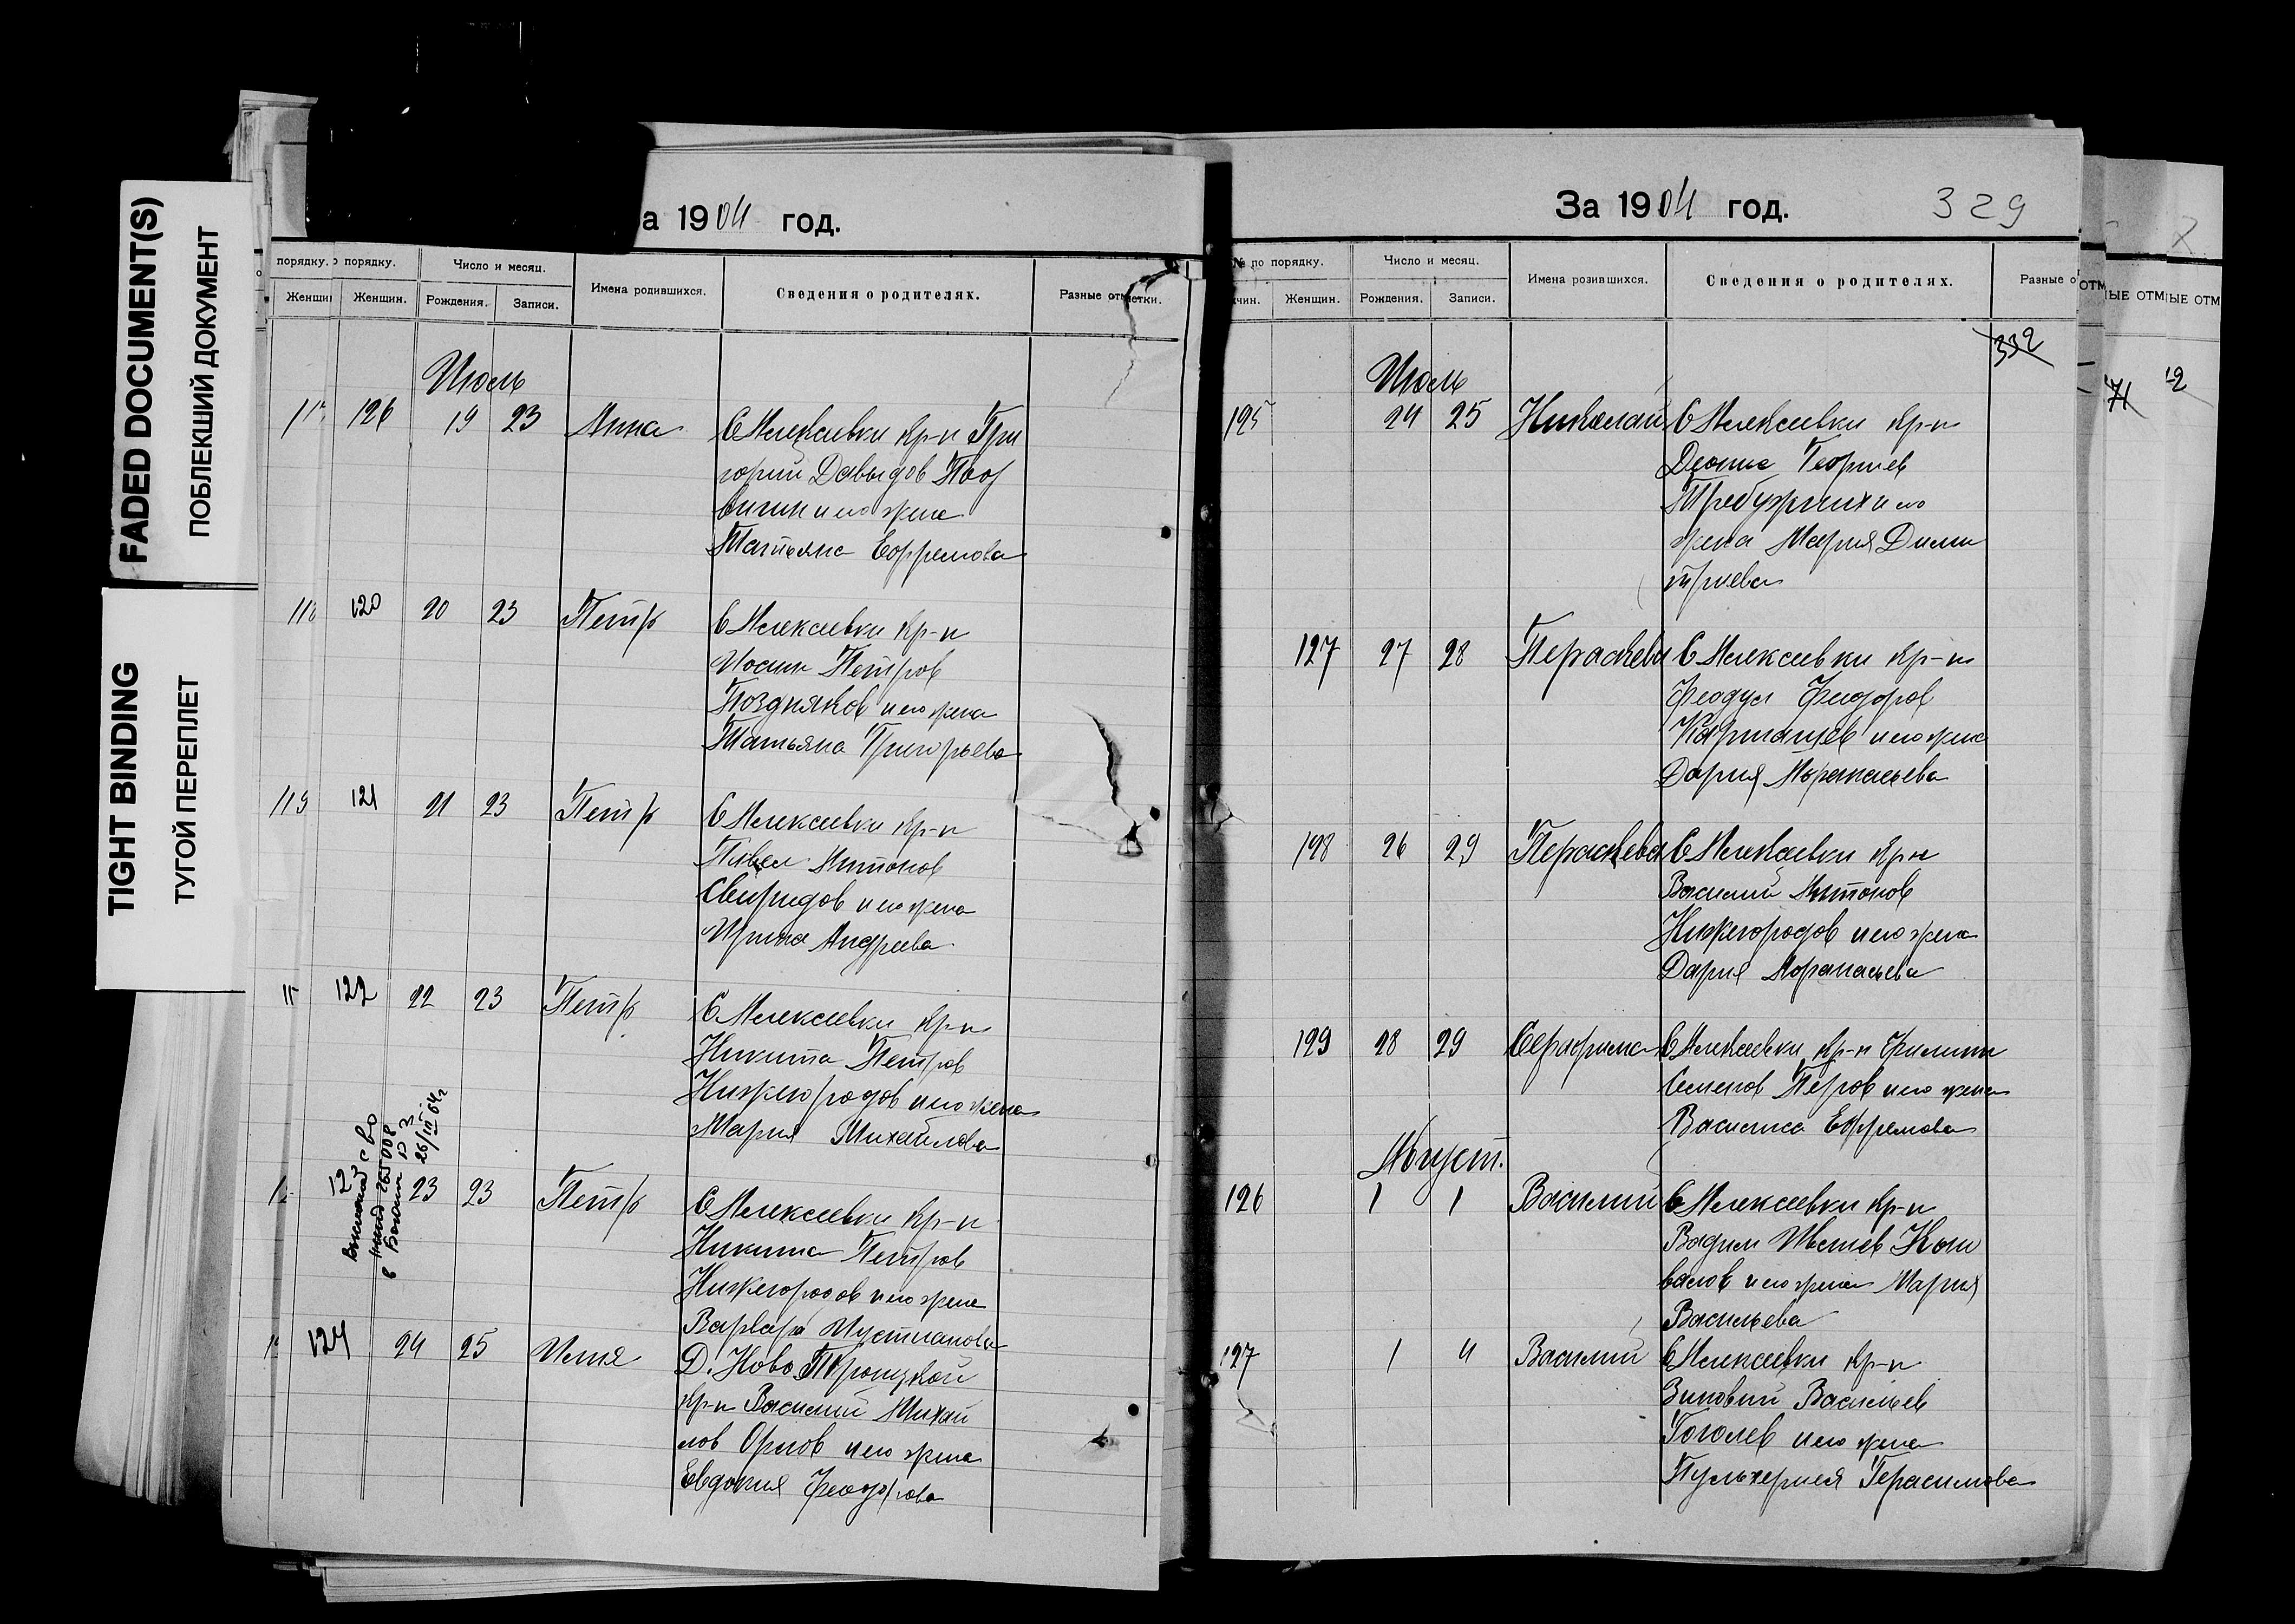 FADED DOCUMENT(S)
ПОБЛЕКШИЙ ДОКУМЕНТ
TIGHT BINDING
ТУГОЙ ПЕРЕПЛЕТ
а 1904 год.
порядку. о порядку. Число и месяц. Имена родившихся. Сведения о родителях. Разные отметки.
Женщин Женщин. Рождения. Записи.
Июль
126 19 23 Анна С Алексеевки кр-н Гри
горий Давыдов
и его жена
Татьяна Ефремова
118 120 20 23 Петр С Алексеевки кр-н
Иоанн Петров
Поздняков и его жена
Татьяна Григорьева
119 121 21 23 Петр С Алексеевки кр-н
Павел Антонов
Свиридов и его жена
Ирина Андреева
122 22 23 Петр С Алексеевки кр-н
Никита Петров
Нижегородов и его жена
Мария Михайлова
123 23 23 Петр С Алексеевки кр-н
Никита Петров
Нижегородов и его жена
Варвара Иустианова
124 24 25 Илия Д. Ново Троицкой
кр-н Василий Михай
лов Орлов и его жена
Евдокия Феодорова
За 1904 год. 329
№ по порядку. Число и месяц. Имена розившихся. Сведения о родителях. Разные о
чин. Женщин. Рождения. Записи.
332
Июль
125 24 25 Николай С Алексеевки кр-н
Георгиев
и его
жена Мария Дими
триева
127 27 28 Параскева С Алексеевки кр-н
Феодул Феодоров
и его жена
Дария Афанасьева
128 26 29 Параскева С Алексеевки кр-н
Василий Антонов
Нижегородов и его жена
Дария Афанасьева
129 28 29 Серафима С Алексеевки кр-н Филипп
Семенов Перов и его жена
Василиса Ефремова
Август.
126 1 1 Василий С Алексеевки кр-н
Вадим
и его жена Мария
Васильева
127 1 4 Василий С Алексеевки кр-н
Зиновий Васильев
Гоголев и его жена
Пульхерия Герасимова